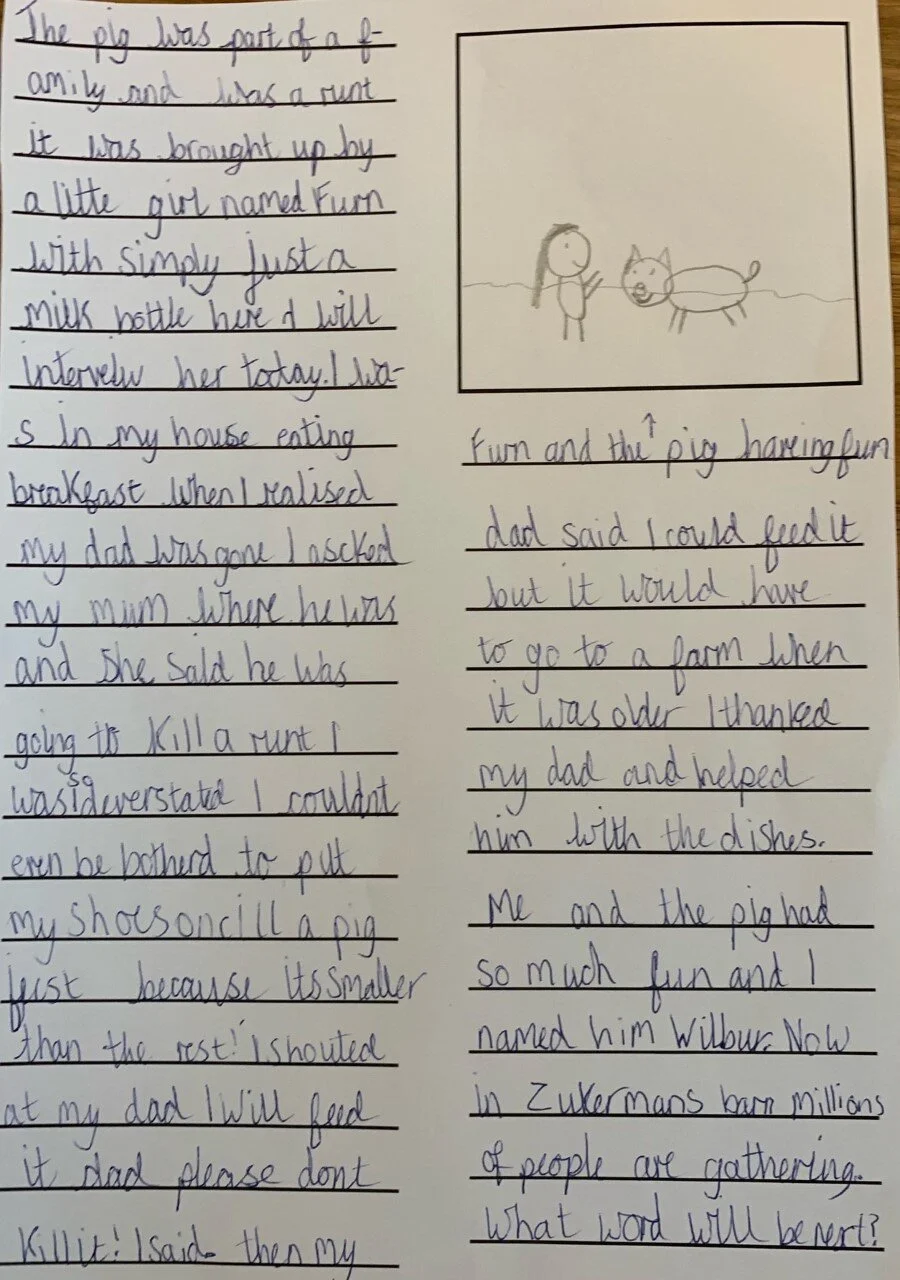 The pig was part of a f-
amily and was a runt
it was brought up by
a litte girl named Furn
with simply just a
milk bottle here I will
intervelw her today. I wa-
s in my house eating
breakfast when I realised
my dad was gone I ascked
my mum where he was
and she said he was
going to kill a runt I
so
was deverstated I couldnt
even be botherd to put
my shoes on cill a pig
just because its smaller
than the rest! I shouted
at my dad I will feed
it dad please dont
kill it! I said. then my
Furn and the ↑ pig haveing fun
dad said I could feed it
but it would have
to go to a farm when
it was older I thanked
my dad and helped
him with the dishes.
Me and the pig had
so much fun and I
named him Wilbur. Now
in Zukermans barn millions
of people are gathering.
What word will be next?